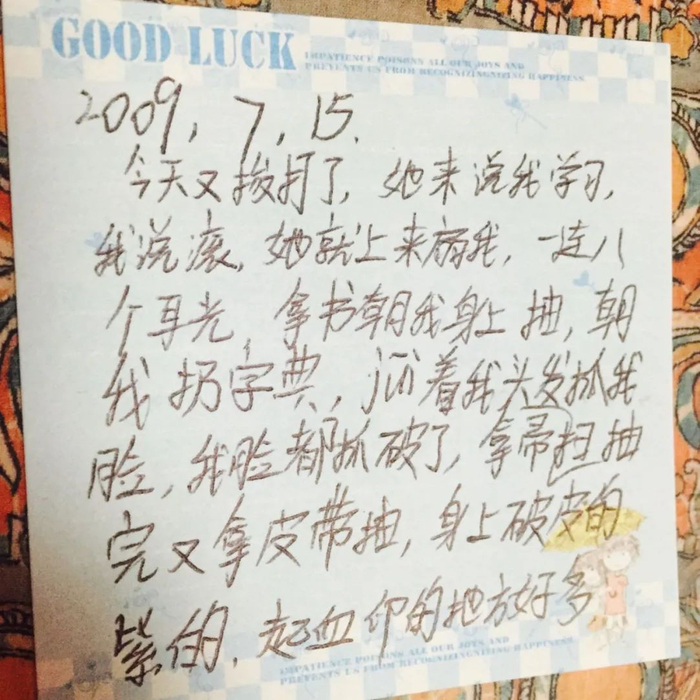 GOOD LUCK
IMPATIENCE POISONS ALL OUR JOYS AND
PREVENTS US FROM RECOGNIZINGNIZING HAPPINESS.
2009, 7, 15.
今天又挨打了, 她来说我学习,
我说滚, 她就上来扇我, 一连八
个耳光, 拿书朝我身上抽, 朝
我扔字典, 着我头发抓我
脸, 我脸都抓破了, 拿扫帚抽
完又拿皮带抽, 身上破皮的
紫的, 起血印的地方好多
IMPATIENCE POISONS ALL OUR JOYS AND
PREVENTS US FROM RECOGNIZINGNIZING HAPPINESS.